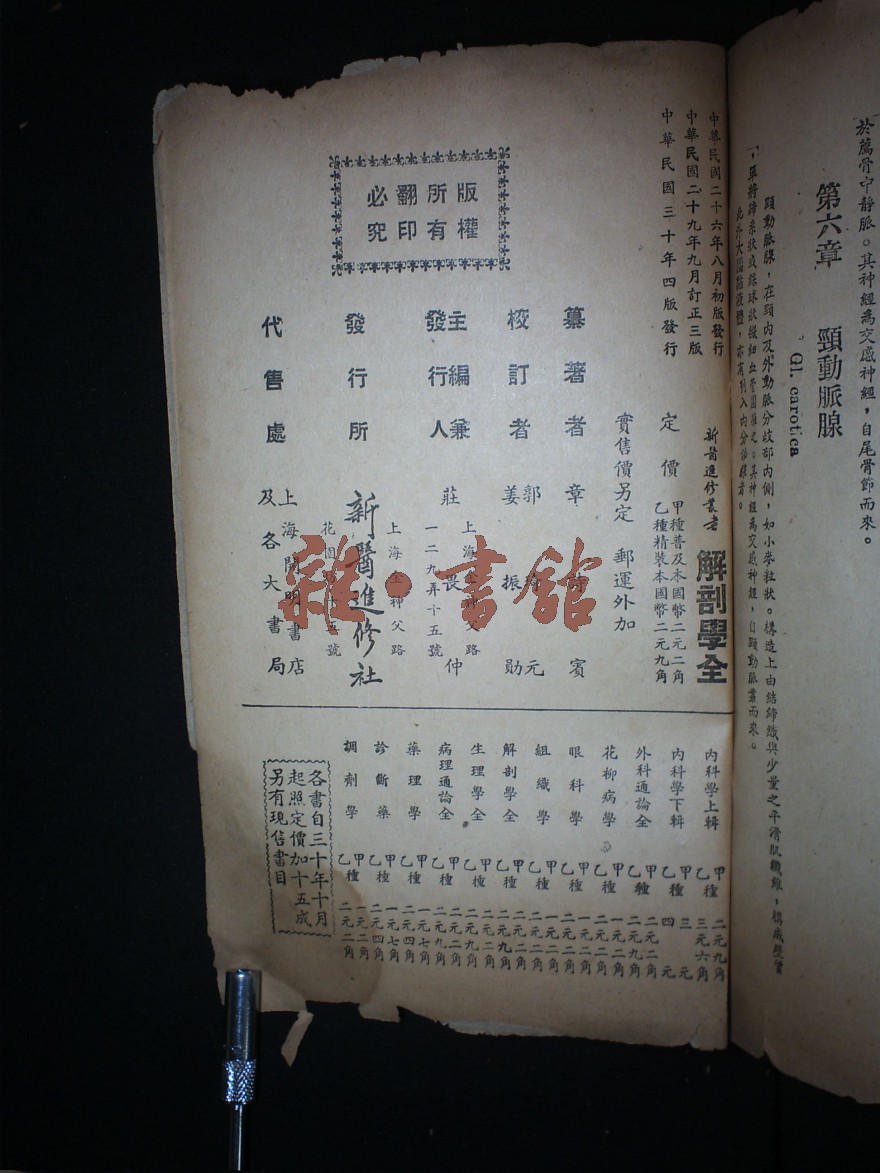 於薦骨中靜脈。其神經為交感神經，自尾骨節而來。
第六章　頸動脈腺
Gl. carotica
頸動脈腺，在頸內及外動脈分歧部內側，如小麥粒狀。構造上由結締織與少量之平滑肌纖維，構成壁實
其神經為交感神經，自頸動脈叢而來。
中華民國二十六年八月初版發行
中華民國二十九年九月訂正三版
中華民國三十年四版發行
新醫進修叢書
解剖學全
定價
甲種普及本國幣二元二角
乙種精裝本國幣二元九角
實售價另定　郵運外加
纂著者　章　賓
校訂者　郭　元
姜振勛
主編兼
發行人　莊畏仲
上海金神父路
一二九弄十五號
發行所　新醫進修社
上海金神父路
花園坊十五號
代售處　上海開明書店
及各大書局
版權所有
翻印必究
雜·書館
內科學上輯　甲種　二元九角
乙種　三元六角
內科學下輯　甲種　三元
乙種　四元
外科通論全　甲種　二元二角
乙種　二元九角
花柳病學　甲種　一元二角
乙種　二元二角
眼科學　甲種　一元二角
乙種　二元二角
組織學　甲種　一元二角
乙種　二元二角
解剖學全　甲種　二元二角
乙種　二元九角
生理學全　甲種　二元二角
乙種　二元九角
病理通論全　甲種　二元二角
乙種　二元九角
藥理學　甲種　一元七角
乙種　二元四角
診斷藥　甲種　一元七角
乙種　二元四角
調劑學　甲種　一元二角
乙種　二元二角
各書自三十年十月
起照定價加十五成
另有現售書目